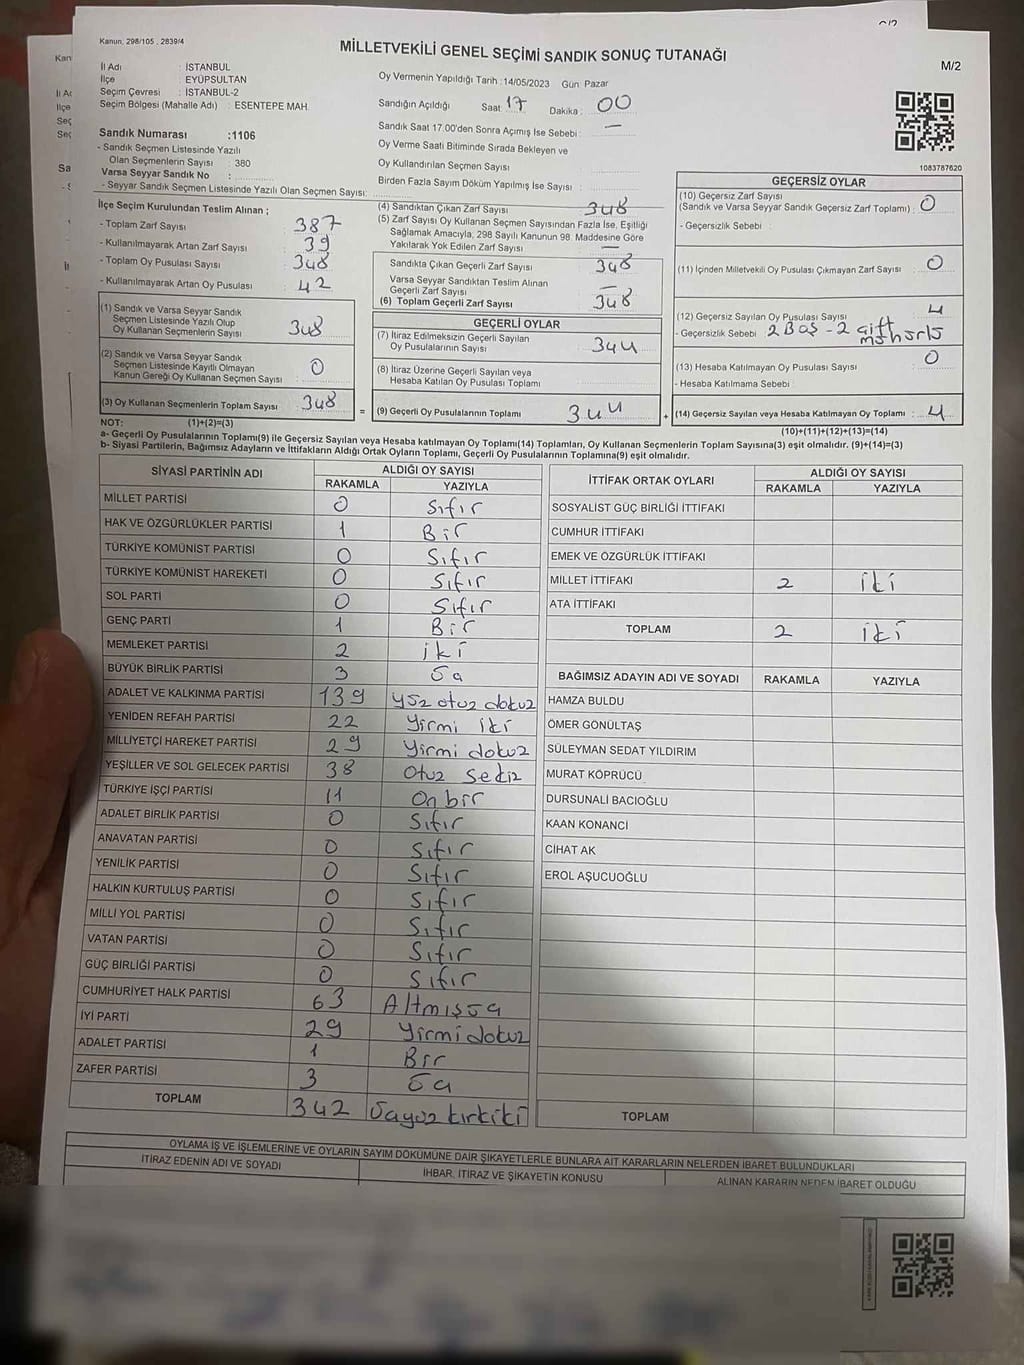 Kanun, 298/105 , 2839/4
MİLLETVEKİLİ GENEL SEÇİMİ SANDIK SONUÇ TUTANAĞI
M/2
İl Adı : İSTANBUL
İlçe : EYÜPSULTAN
Seçim Çevresi : İSTANBUL-2
Seçim Bölgesi (Mahalle Adı) : ESENTEPE MAH.
Sandık Numarası :1106
- Sandık Seçmen Listesinde Yazılı
Olan Seçmenlerin Sayısı : 380
Varsa Seyyar Sandık No :
- Seyyar Sandık Seçmen Listesinde Yazılı Olan Seçmen Sayısı:
Oy Vermenin Yapıldığı Tarih : 14/05/2023 Gün Pazar
Sandığın Açıldığı Saat 17 Dakika : 00
Sandık Saat 17.00'den Sonra Açımış İse Sebebi : —
Oy Verme Saati Bitiminde Sırada Bekleyen ve
Oy Kullandırılan Seçmen Sayısı :
Birden Fazla Sayım Döküm Yapılmış İse Sayısı :
1083787620
İlçe Seçim Kurulundan Teslim Alınan ;
- Toplam Zarf Sayısı : 387
- Kullanılmayarak Artan Zarf Sayısı : 39
- Toplam Oy Pusulası Sayısı : 348
- Kullanılmayarak Artan Oy Pusulası : 42
(1) Sandık ve Varsa Seyyar Sandık
Seçmen Listesinde Yazılı Olup
Oy Kullanan Seçmenlerin Sayısı : 348
(2) Sandık ve Varsa Seyyar Sandık
Seçmen Listesinde Kayıtlı Olmayan
Kanun Gereği Oy Kullanan Seçmen Sayısı : 0
(3) Oy Kullanan Seçmenlerin Toplam Sayısı : 348
(4) Sandıktan Çıkan Zarf Sayısı : 348
(5) Zarf Sayısı Oy Kullanan Seçmen Sayısından Fazla İse, Eşitliği
Sağlamak Amacıyla; 298 Sayılı Kanunun 98. Maddesine Göre
Yakılarak Yok Edilen Zarf Sayısı : —
Sandıkta Çıkan Geçerli Zarf Sayısı : 348
Varsa Seyyar Sandıktan Teslim Alınan
Geçerli Zarf Sayısı : —
(6) Toplam Geçerli Zarf Sayısı : 348
GEÇERLİ OYLAR
(7) İtiraz Edilmeksizin Geçerli Sayılan
Oy Pusulalarının Sayısı : 344
(8) İtiraz Üzerine Geçerli Sayılan veya
Hesaba Katılan Oy Pusulası Toplamı :
= (9) Geçerli Oy Pusulalarının Toplamı : 344
GEÇERSİZ OYLAR
(10) Geçersiz Zarf Sayısı
(Sandık ve Varsa Seyyar Sandık Geçersiz Zarf Toplamı) : 0
- Geçersizlik Sebebi :
(11) İçinden Milletvekili Oy Pusulası Çıkmayan Zarf Sayısı : 0
(12) Geçersiz Sayılan Oy Pusulası Sayısı : 4
- Geçersizlik Sebebi : 2 Boş - 2 çift mühürlü
(13) Hesaba Katılmayan Oy Pusulası Sayısı : 0
- Hesaba Katılmama Sebebi :
+ (14) Geçersiz Sayılan veya Hesaba Katılmayan Oy Toplamı : 4
NOT: (1)+(2)=(3)
(10)+(11)+(12)+(13)=(14)
a- Geçerli Oy Pusulalarının Toplamı(9) ile Geçersiz Sayılan veya Hesaba katılmayan Oy Toplamı(14) Toplamları, Oy Kullanan Seçmenlerin Toplam Sayısına(3) eşit olmalıdır. (9)+(14)=(3)
b- Siyasi Partilerin, Bağımsız Adayların ve İttifakların Aldığı Ortak Oyların Toplamı, Geçerli Oy Pusulalarının Toplamına(9) eşit olmalıdır.
SİYASİ PARTİNİN ADI ALDIĞI OY SAYISI
RAKAMLA YAZIYLA
MİLLET PARTİSİ 0 Sıfır
HAK VE ÖZGÜRLÜKLER PARTİSİ 1 Bir
TÜRKİYE KOMÜNİST PARTİSİ 0 Sıfır
TÜRKİYE KOMÜNİST HAREKETİ 0 Sıfır
SOL PARTİ 0 Sıfır
GENÇ PARTİ 1 Bir
MEMLEKET PARTİSİ 2 iki
BÜYÜK BİRLİK PARTİSİ 3 üç
ADALET VE KALKINMA PARTİSİ 139 yüz otuz dokuz
YENİDEN REFAH PARTİSİ 22 Yirmi iki
MİLLİYETÇİ HAREKET PARTİSİ 29 Yirmi dokuz
YEŞİLLER VE SOL GELECEK PARTİSİ 38 Otuz sekiz
TÜRKİYE İŞÇİ PARTİSİ 11 On bir
ADALET BİRLİK PARTİSİ 0 Sıfır
ANAVATAN PARTİSİ 0 Sıfır
YENİLİK PARTİSİ 0 Sıfır
HALKIN KURTULUŞ PARTİSİ 0 Sıfır
MİLLİ YOL PARTİSİ 0 Sıfır
VATAN PARTİSİ 0 Sıfır
GÜÇ BİRLİĞİ PARTİSİ 0 Sıfır
CUMHURİYET HALK PARTİSİ 63 Altmışüç
İYİ PARTİ 29 Yirmi dokuz
ADALET PARTİSİ 1 Bir
ZAFER PARTİSİ 3 üç
TOPLAM 342 üçyüz kırkiki
İTTİFAK ORTAK OYLARI ALDIĞI OY SAYISI
RAKAMLA YAZIYLA
SOSYALİST GÜÇ BİRLİĞİ İTTİFAKI
CUMHUR İTTİFAKI
EMEK VE ÖZGÜRLÜK İTTİFAKI
MİLLET İTTİFAKI 2 iki
ATA İTTİFAKI
TOPLAM 2 iki
BAĞIMSIZ ADAYIN ADI VE SOYADI RAKAMLA YAZIYLA
HAMZA BULDU
ÖMER GÖNÜLTAŞ
SÜLEYMAN SEDAT YILDIRIM
MURAT KÖPRÜCÜ
DURSUNALİ BACIOĞLU
KAAN KONANCİ
CİHAT AK
EROL AŞUCUOĞLU
TOPLAM
OYLAMA İŞ VE İŞLEMLERİNE VE OYLARIN SAYIM DÖKÜMÜNE DAİR ŞİKAYETLERLE BUNLARA AİT KARARLARIN NELERDEN İBARET BULUNDUKLARI
İTİRAZ EDENİN ADI VE SOYADI İHBAR, İTİRAZ VE ŞİKAYETİN KONUSU ALINAN KARARIN NEDEN İBARET OLDUĞU